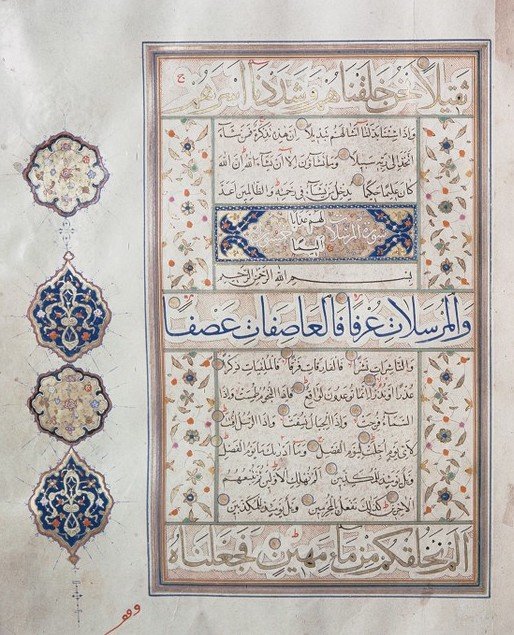 ثَقِيلًا نَحْنُ خَلَقْنَاهُمْ وَشَدَدْنَا أَسْرَهُمْ
وَإِذَا شِئْنَا بَدَّلْنَا أَمْثَالَهُمْ تَبْدِيلًا إِنَّ هَذِهِ تَذْكِرَةٌ فَمَنْ شَاءَ
اتَّخَذَ إِلَى رَبِّهِ سَبِيلًا وَمَا تَشَاءُونَ إِلَّا أَنْ يَشَاءَ اللَّهُ إِنَّ اللَّهَ
كَانَ عَلِيمًا حَكِيمًا يُدْخِلُ مَنْ يَشَاءُ فِي رَحْمَتِهِ وَالظَّالِمِينَ أَعَدَّ
لَهُمْ عَذَابًا
سورة المرسلات
أَلِيمًا
بِسْمِ اللَّهِ الرَّحْمَنِ الرَّحِيمِ
وَالْمُرْسَلَاتِ عُرْفًا فَالْعَاصِفَاتِ عَصْفًا
وَالنَّاشِرَاتِ نَشْرًا فَالْفَارِقَاتِ فَرْقًا فَالْمُلْقِيَاتِ ذِكْرًا
عُذْرًا أَوْ نُذْرًا إِنَّمَا تُوعَدُونَ لَوَاقِعٌ فَإِذَا النُّجُومُ طُمِسَتْ وَإِذَا
السَّمَاءُ فُرِجَتْ وَإِذَا الْجِبَالُ نُسِفَتْ وَإِذَا الرُّسُلُ أُقِّتَتْ
لِأَيِّ يَوْمٍ أُجِّلَتْ لِيَوْمِ الْفَصْلِ وَمَا أَدْرَاكَ مَا يَوْمُ الْفَصْلِ
وَيْلٌ يَوْمَئِذٍ لِلْمُكَذِّبِينَ أَلَمْ نُهْلِكِ الْأَوَّلِينَ ثُمَّ نُتْبِعُهُمُ
الْآخِرِينَ كَذَلِكَ نَفْعَلُ بِالْمُجْرِمِينَ وَيْلٌ يَوْمَئِذٍ لِلْمُكَذِّبِينَ
أَلَمْ نَخْلُقْكُمْ مِنْ مَاءٍ مَهِينٍ فَجَعَلْنَاهُ
وقف